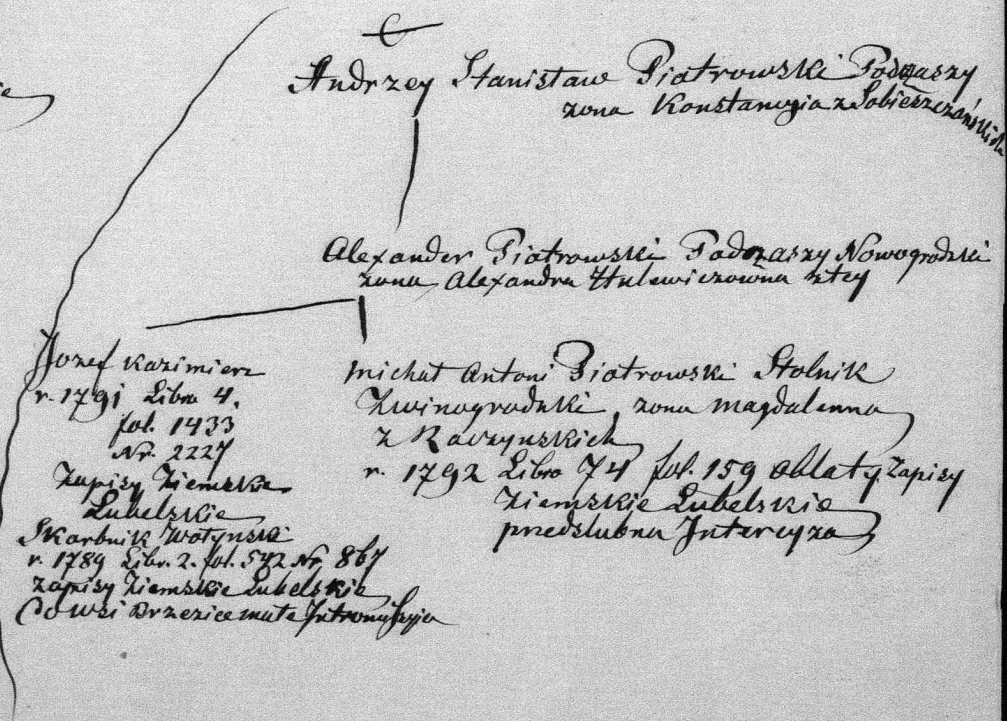 C
Andrzey Stanisław Piotrowski Podczaszy
żona Konstancyia z Sobieszczańskich
Alexander Piotrowski Podczaszy Nowogrodzki
żona Alexandra Hulewiczowna 2tey
Jozef Kazimierz
r. 1791 Libro 4.
fol. 1433
Nr. 2227
Zapisy Ziemskie
Lubelskie
Skarbnik Wołynski
r. 1789 Libr. 2. fol. 572 Nr 867
zapisy Ziemskie Lubelskie
do wsi Brzezice małe Intromissyia
michał Antoni Piotrowski Stolnik
Zwinogrodzki, żona magdalenna
z Raczynskich
r. 1792 Libro 74 fol. 159 oblaty. Zapisy
Ziemskie Lubelskie
przedslubna Intercyza